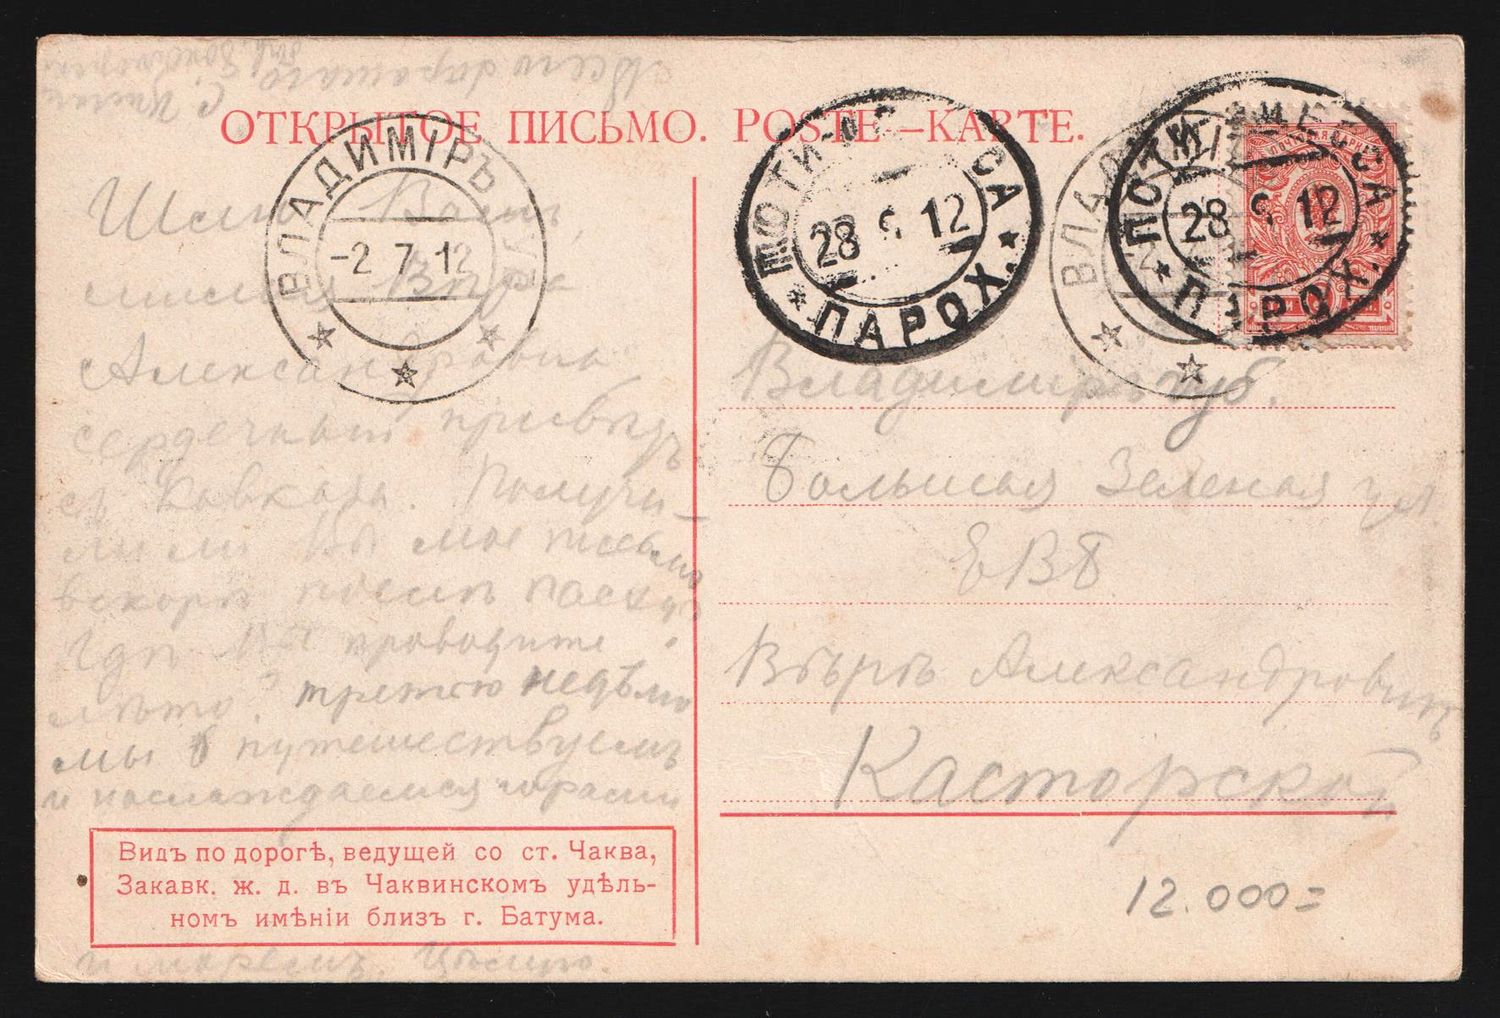 Всего хорошаго
ОТКРЫТОЕ ПИСЬМО. POSTE –KARTE.
ВЛАДИМІРЪ
-2 7 12
ПОТИ-ОДЕССА
28 6 12
ПАРОХ.
ПОТИ-ОДЕССА
28 6 12
ПАРОХ.
ВЛАД
ПОЧТОВАЯ МАРКА
Шлю Вамъ
милая Вѣра
Александровна
сердечный привѣтъ
съ Кавказа. Получи-
ли ли Вы мое письмо
вскорѣ послѣ пасхи?
Гдѣ Вы проводите
лѣто? третью недѣлю
мы путешествуемъ
и наслаждаемся горами
и моремъ. Цѣлую.
Владимиръ губ.
Большая Зеленая ул.
ЕВБ
Вѣрѣ Александровнѣ
Касторской
Видъ по дорогѣ, ведущей со ст. Чаква,
Закавк. ж. д. въ Чаквинскомъ удѣль-
номъ имѣніи близъ г. Батума.
12.000=